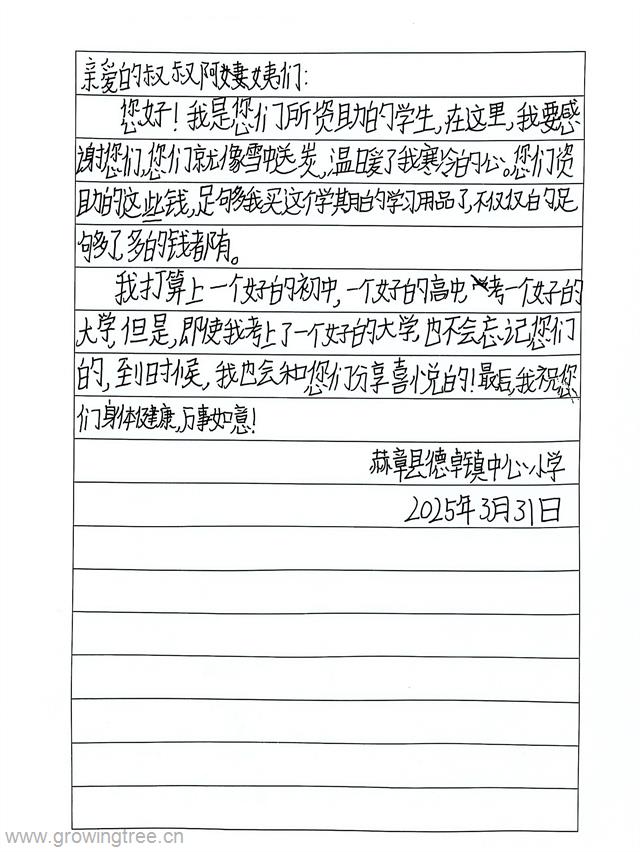 亲爱的叔叔阿姨姨们：
您好！我是您们所资助的学生，在这里，我要感
谢您们，您们就像雪中送炭，温暖了我寒冷的心。您们资
助的这些钱，足够我买这个学期的学习用品了，不仅仅的足
够了，多的钱都有。
我打算上一个好的初中，一个好的高中，考一个好的
大学，但是，即使我考上了一个好的大学，也不会忘记您们
的，到时候，我也会和您们分享喜悦的！最后，我祝您
们身体健康，万事如意！
赫章县德卓镇中心小学
2025年3月31日
www.growingtree.cn